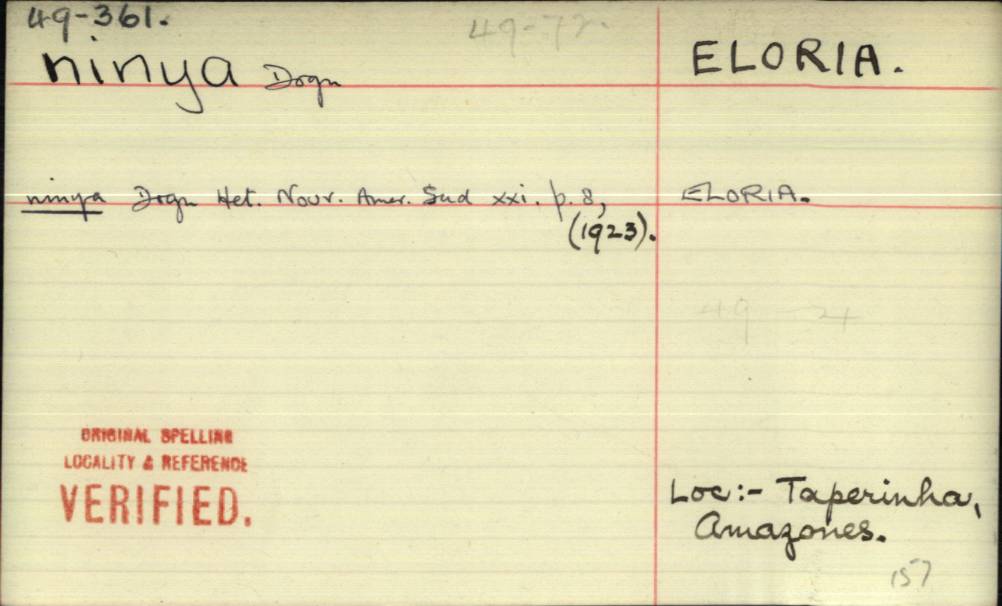 49-361.
49-72.
ninya Dogn
ELORIA.
ninya Dogn Het. Nouv. Amer. Sud xxi. p. 8,
(1923).
ELORIA.
49
ORIGINAL SPELLING
LOCALITY & REFERENCE
VERIFIED.
Loc:- Taperinha,
Amazones.
157